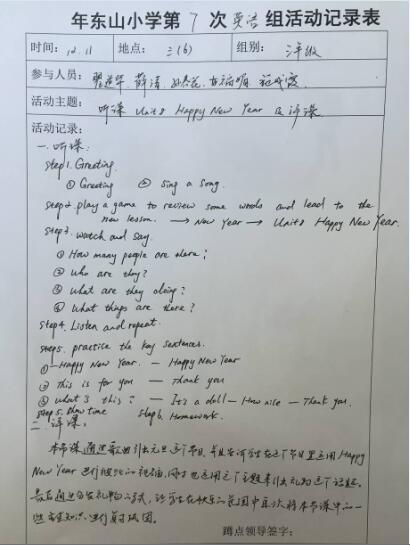 年东山小学第 7 次 英语 组活动记录表
时间: 12.11 地点: 三(6) 组别: 三年级
参与人员:
活动主题: 听课 Unit8 Happy New Year 及评课
活动记录:
一. 听课:
Step1. Greeting.
① Greeting ② Sing a song.
Step2. play a game to review some words and lead to the
new lesson. → New Year → Unit8 Happy New Year.
Step3. watch and say.
① How many people are there?
② Who are they?
③ What are they doing?
④ What things are there?
Step4. Listen and repeat.
Step5. practice the key sentences.
① - Happy New Year. - Happy New Year
② This is for you - Thank you
③ What's this? - It's a doll - How nice - Thank you.
Step5. Show time Step6. Homework.
二. 评课:
本节课通过歌曲引出元旦这个节日, 并且告诉学生在这个节日里运用Happy
New Year 进行彼此的祝福, 同时也运用这个主题来引出礼物这个话题.
最后通过分发礼物的方式, 让学生在快乐的氛围中再次将本节课中的一
些知识进行复习巩固.
蹲点领导签字: